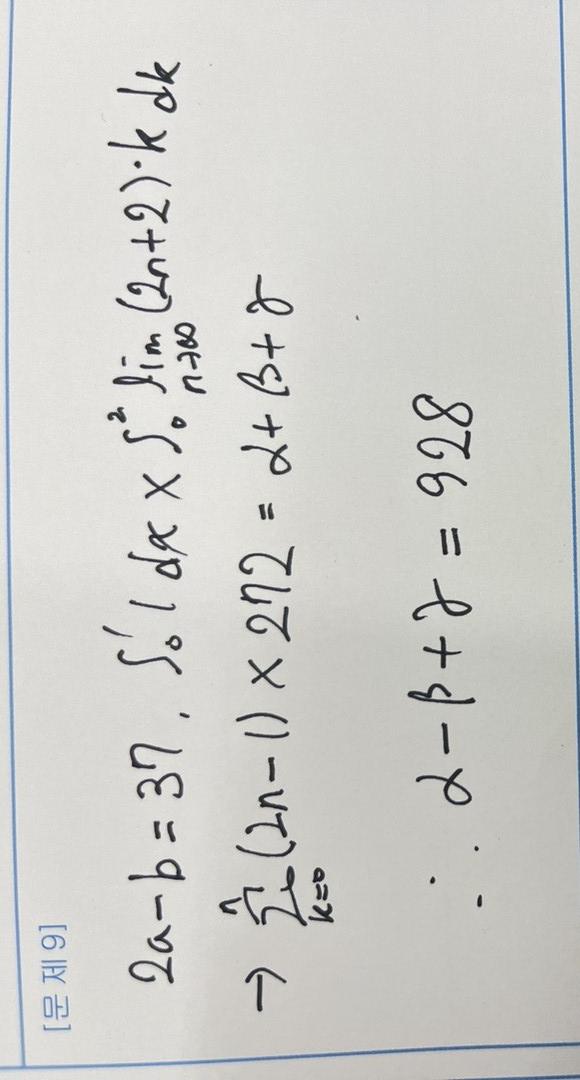 [문제 9]
2a-b=37, ∫₀¹ 1 dx × ∫₀² lim_{n→∞} (2n+2)·k dk
→ Σ_{k=0}^{n} (2n-1) × 272 = α+β+γ
∴ α-β+γ = 928